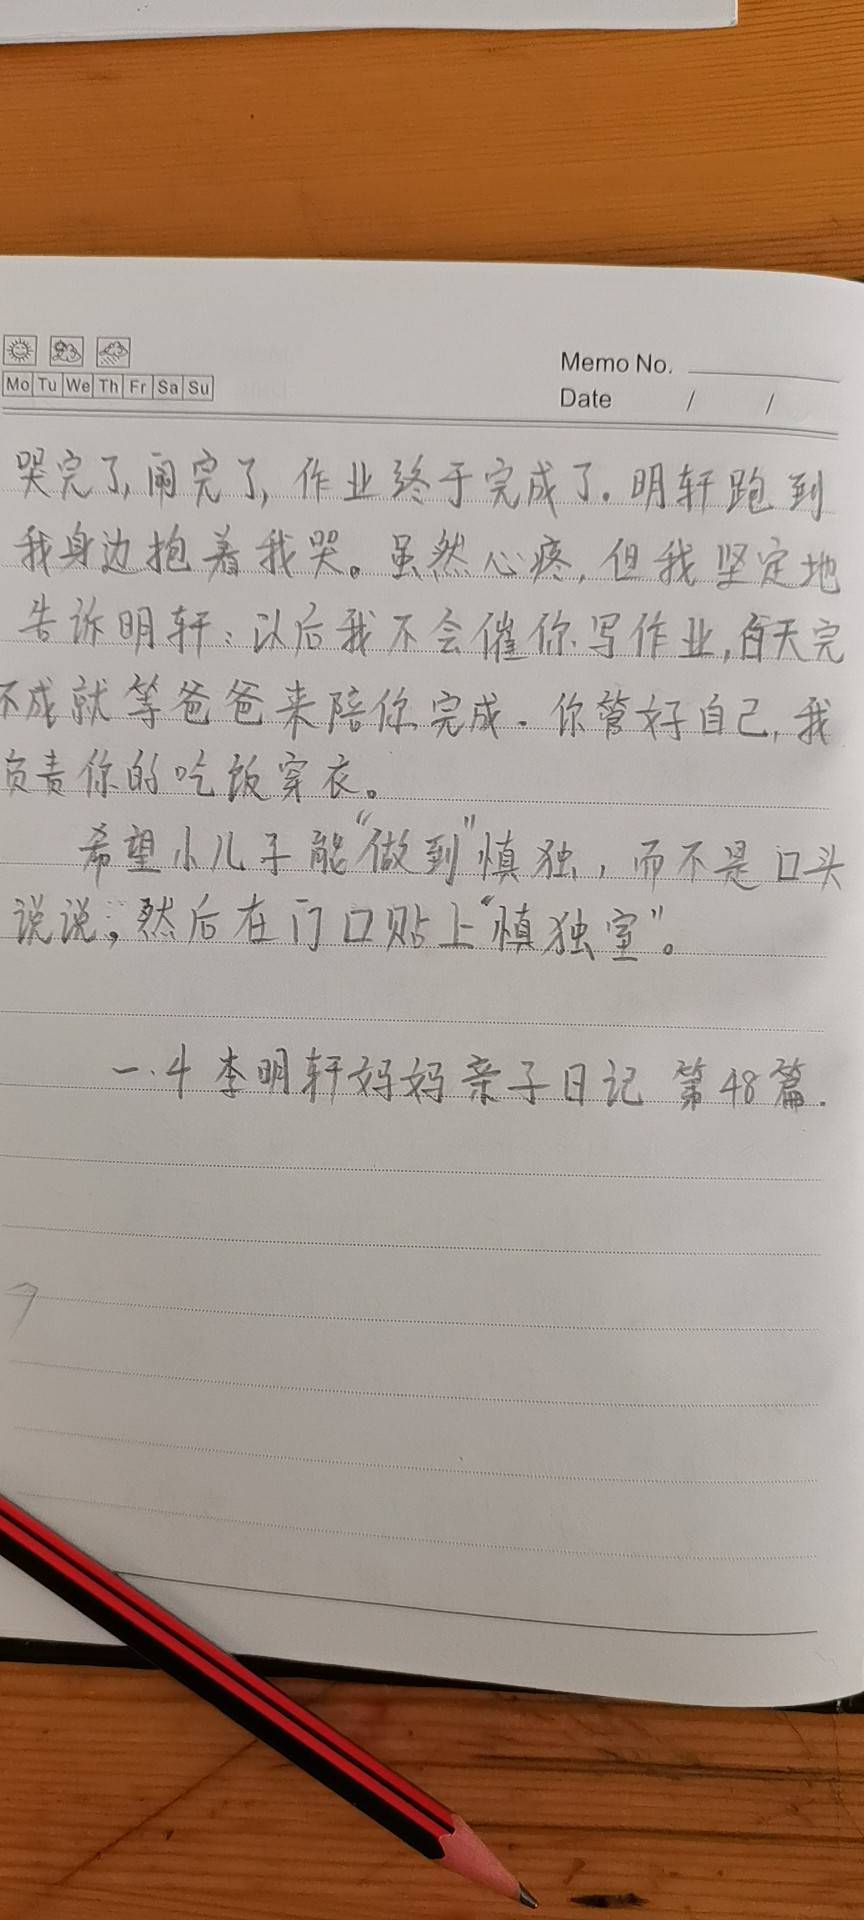 Mo Tu We Th Fr Sa Su
Memo No.
Date / /
哭完了,闹完了,作业终于完成了.明轩跑到
我身边抱着我哭。虽然心疼,但我坚定地
告诉明轩:以后我不会催你写作业,白天完
不成就等爸爸来陪你完成.你管好自己,我
负责你的吃饭穿衣。
希望小儿子能“做到”慎独,而不是口头
说说,然后在门口贴上“慎独室”。
一.4 李明轩妈妈亲子日记 第48篇.